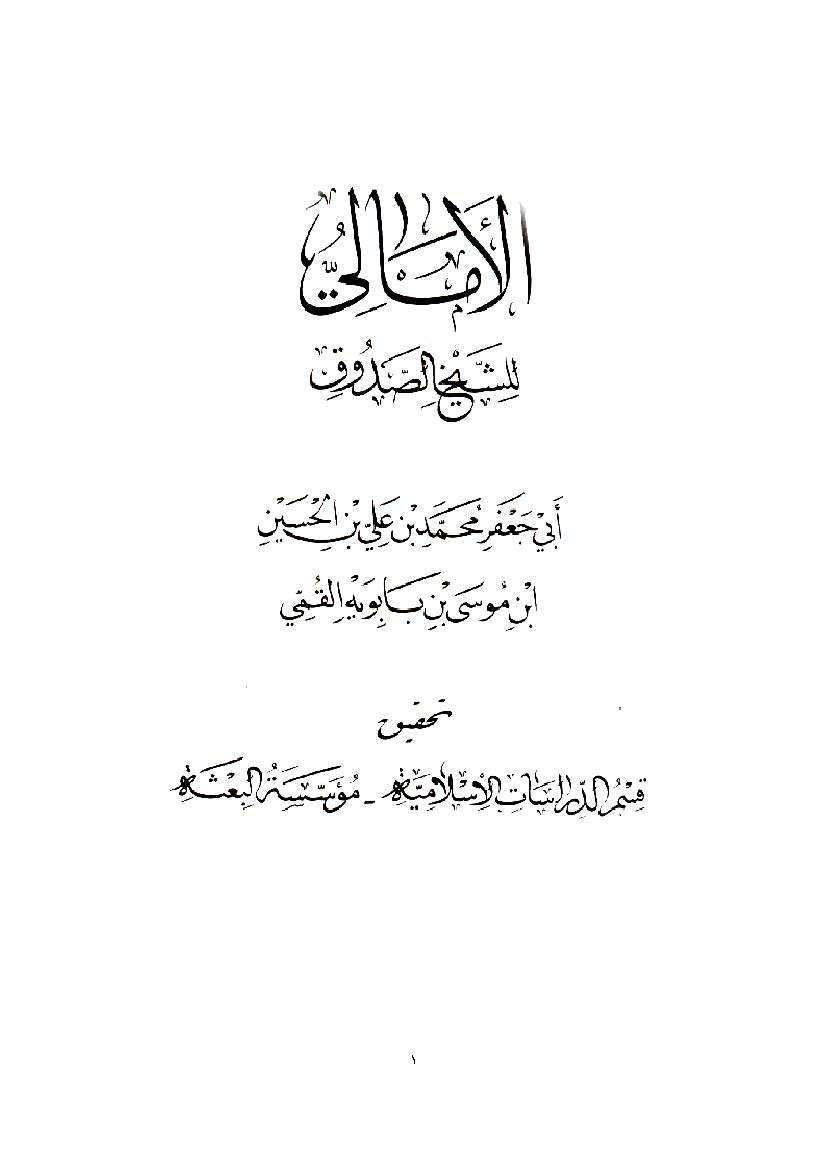 الأَمَالِيُّ
لِلشَّيْخِ الصَّدُوقِ
أَبِي جَعْفَرٍ مُحَمَّدِ بْنِ عَلِيِّ بْنِ الْحُسَيْنِ
ابْنِ مُوسَى بْنِ بَابَوَيْهِ الْقُمِّيِّ
تحقيق
قِسْمُ الدِّرَاسَاتِ الإِسْلَامِيَّةِ - مُؤَسَّسَةُ الْبِعْثَةِ
١